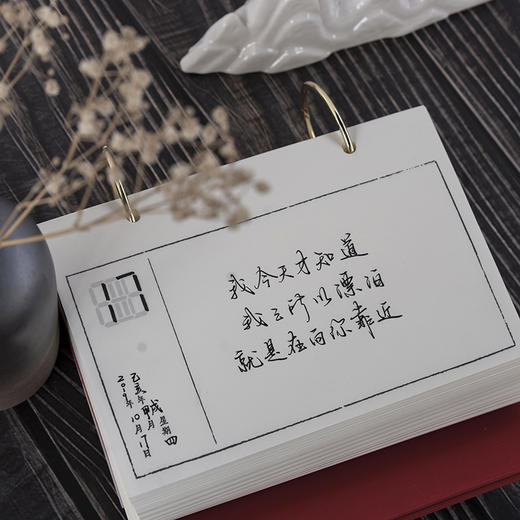 17
我今天才知道
我之所以漂泊
就是在向你靠近
己亥年 甲戌月 星期四
2019年10月17日